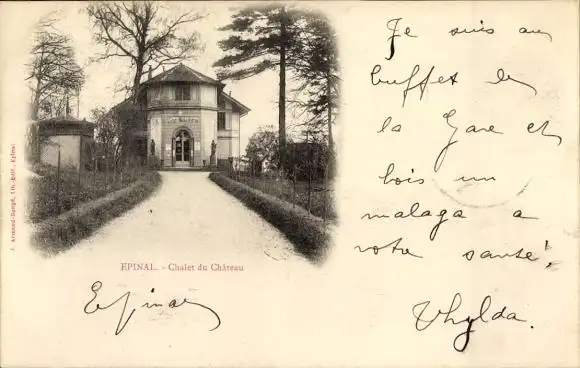 Je suis au
buffet de
la Gare et
bois un
malaga a
votre santé!
Thylda.
EPINAL. - Chalet du Château
Epinal